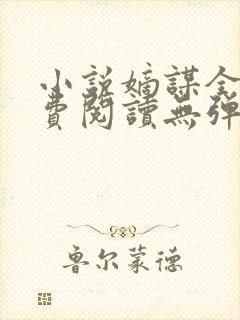 小说嫡謀全
費閱讀無彈
鲁尔蒙德